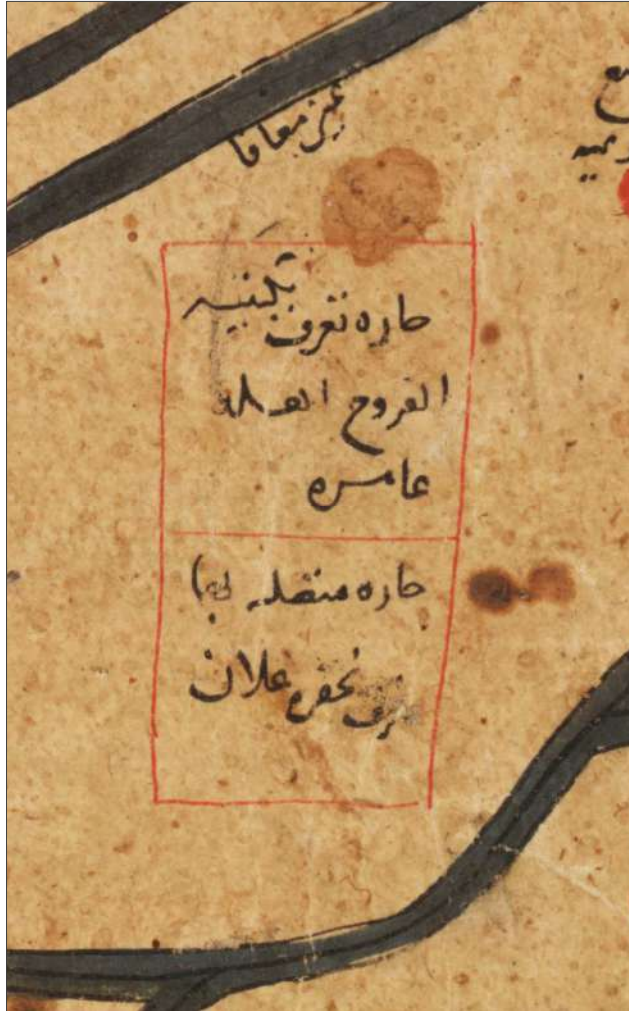 عين معافا
حاره تعرف بكنيسه
الفروح
عامره
حاره متصله بها
تعرف بحفره علان